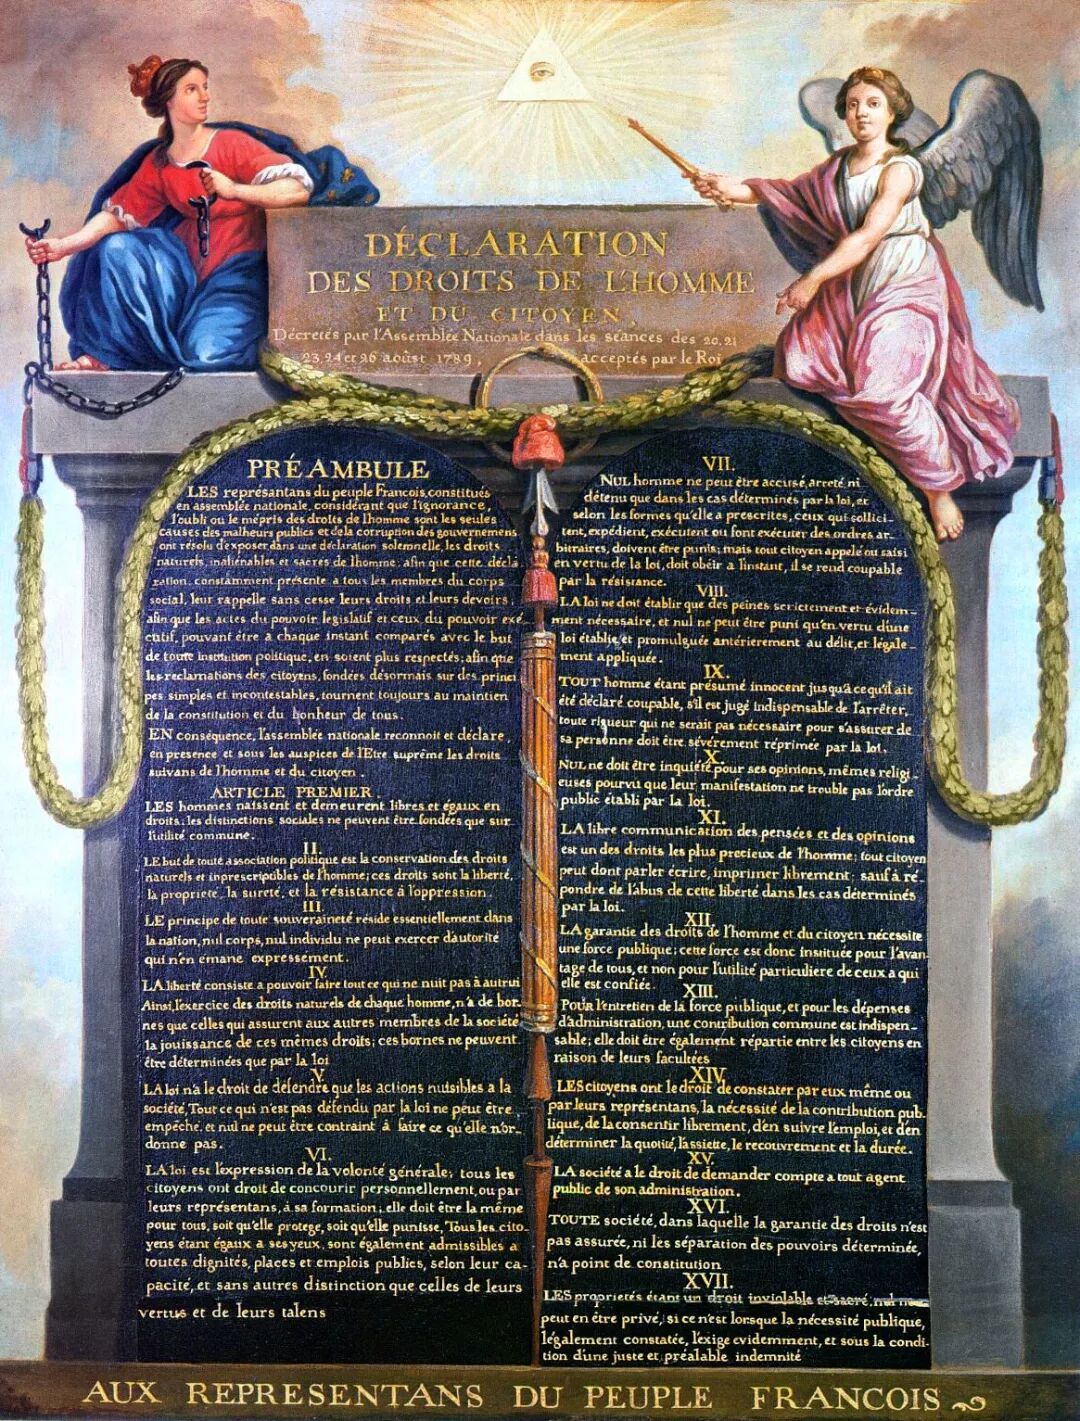 DÉCLARATION
DES DROITS DE L'HOMME
ET DU CITOYEN,
Décretés par l'Assemblée Nationale dans les séances des 20, 21
23, 24 et 26 aoûst 1789, acceptés par le Roi
PRÉAMBULE
LES représantans du peuple Francois, constitués
en assemblée nationale, considérant que l'ignorance,
l'oubli ou le mépris des droits de l'homme sont les seules
causes des malheurs publics et de la corruption des gouvernemens
ont résolu d'exposer dans une déclaration solemnelle, les droits
naturels, inaliénables et sacrés de l'homme; afin que cette décla-
ration, constamment présente a tous les membres du corps
social, leur rappelle sans cesse leurs droits et leurs devoirs;
afin que les actes du pouvoir legislatif et ceux du pouvoir exé-
cutif, pouvant être à chaque instant comparés avec le but
de toute institution politique, en soient plus respectés; afin que
les reclamations des citoyens, fondées désormais sur des princi-
pes simples et incontestables, tournent toujours au maintien
de la constitution et du bonheur de tous.
EN conséquence, l'assemblée nationale reconnoit et déclare
en presence et sous les auspices de l'Etre suprême les droits
suivans de l'homme et du citoyen.
ARTICLE PREMIER.
LES hommes naissent et demeurent libres et égaux en
droits. les distinctions sociales ne peuvent être fondées que sur
l'utilité commune.
II.
LE but de toute association politique est la conservation des droits
naturels et inprescriptibles de l'homme; ces droits sont la liberté,
la propriété, la sureté, et la résistance à l'oppression.
III.
LE principe de toute souveraineté réside essentiellement dans
la nation, nul corps, nul individu ne peut exercer d'autorité
qui n'en émane expressement.
IV.
LA liberté consiste a pouvoir faire tout ce qui ne nuit pas à autrui
Ainsi, l'exercice des droits naturels de chaque homme, n'a de bor-
nes que celles qui assurent aux autres membres de la société
la jouissance de ces mêmes droits; ces bornes ne peuvent
être déterminées que par la loi
V.
LA loi n'a le droit de défendre que les actions nuisibles a la
société, Tout ce qui n'est pas défendu par la loi ne peut être
empêché, et nul ne peut être contraint à faire ce qu'elle n'or-
donne pas.
VI.
LA loi est l'expression de la volonté générale; tous les
citoyens ont droit de concourir personnellement, ou par
leurs représentans, à sa formation; elle doit être la même
pour tous, soit qu'elle protege, soit qu'elle punisse, Tous les cito-
yens étant égaux a ses yeux, sont également admissibles a
toutes dignités, places et emplois publics, selon leur ca-
pacité, et sans autres distinction que celles de leurs
vertus et de leurs talens
VII.
NUL homme ne peut être accusé, arreté, ni
détenu que dans les cas déterminés par la loi, et
selon les formes qu'elle a prescrites, ceux qui sollici-
tent, expédient, exécutent ou font exécuter des ordres ar-
bitraires, doivent être punis; mais tout citoyen appelé ou saisi
en vertu de la loi, doit obéir a l'instant, il se rend coupable
par la résistance.
VIII.
LA loi ne doit établir que des peines strictement et évidem-
ment nécessaire, et nul ne peut être puni qu'en vertu d'une
loi établie et promulguée antérierement au délit, et légale-
ment appliquée.
IX.
TOUT homme étant présumé innocent jusqu'a ce qu'il ait
été déclaré coupable, s'il est jugé indispensable de l'arrêter,
toute rigueur qui ne serait pas nécessaire pour s'assurer de
sa personne doit être sévèrement réprimée par la loi.
X.
NUL ne doit être inquiété pour ses opinions, mêmes religi-
euses pourvu que leur manifestation ne trouble pas l'ordre
public établi par la loi.
XI.
LA libre communication des pensées et des opinions
est un des droits les plus precieux de l'homme; tout citoyen
peut dont parler écrire, imprimer librement; sauf à ré-
pondre de l'abus de cette liberté dans les cas déterminés
par la loi.
XII.
LA garantie des droits de l'homme et du citoyen nécessite
une force publique; cette force est donc instituée pour l'avan-
tage de tous, et non pour l'utilité particuliere de ceux a qui
elle est confiée.
XIII.
POUR l'entretien de la force publique, et pour les dépenses
d'administration, une contribution commune est indispen-
sable; elle doit être également répartie entre les citoyens en
raison de leurs facultées
XIV.
LES citoyens ont le droit de constater par eux même ou
par leurs représentans, la nécessité de la contribution pub-
lique, de la consentir librement, d'en suivre l'emploi, et d'en
déterminer la quotité, l'assiette, le recouvrement et la durée.
XV.
LA société a le droit de demander compte a tout agent
public de son administration.
XVI.
TOUTE société, dans laquelle la garantie des droits n'est
pas assurée, ni les séparation des pouvoirs déterminée,
n'a point de constitution
XVII.
LES proprietés étant un droit inviolable et sacré, nul ne
peut en être privé, si ce n'est lorsque la nécessité publique,
légalement constatée, l'exige evidemment, et sous la condi-
tion d'une juste et préalable indemnité
AUX REPRESENTANS DU PEUPLE FRANCOIS